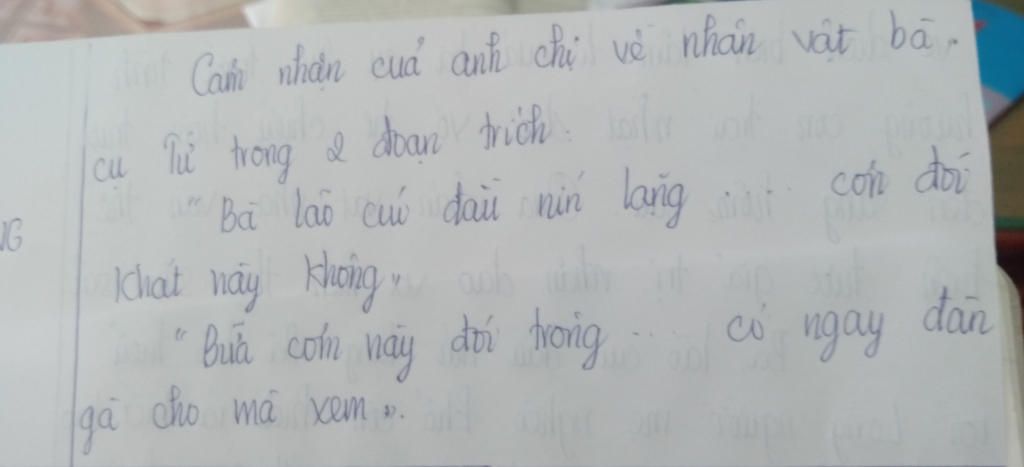 Cảm nhận của anh chị về nhân vật bà
cụ Tứ trong 2 đoạn trích:
"Bà lão cúi đầu nín lặng ..... cơn đói
khát này không"
"Bữa cơm ngày đói trông ... có ngay đàn
gà cho mà xem".
NG